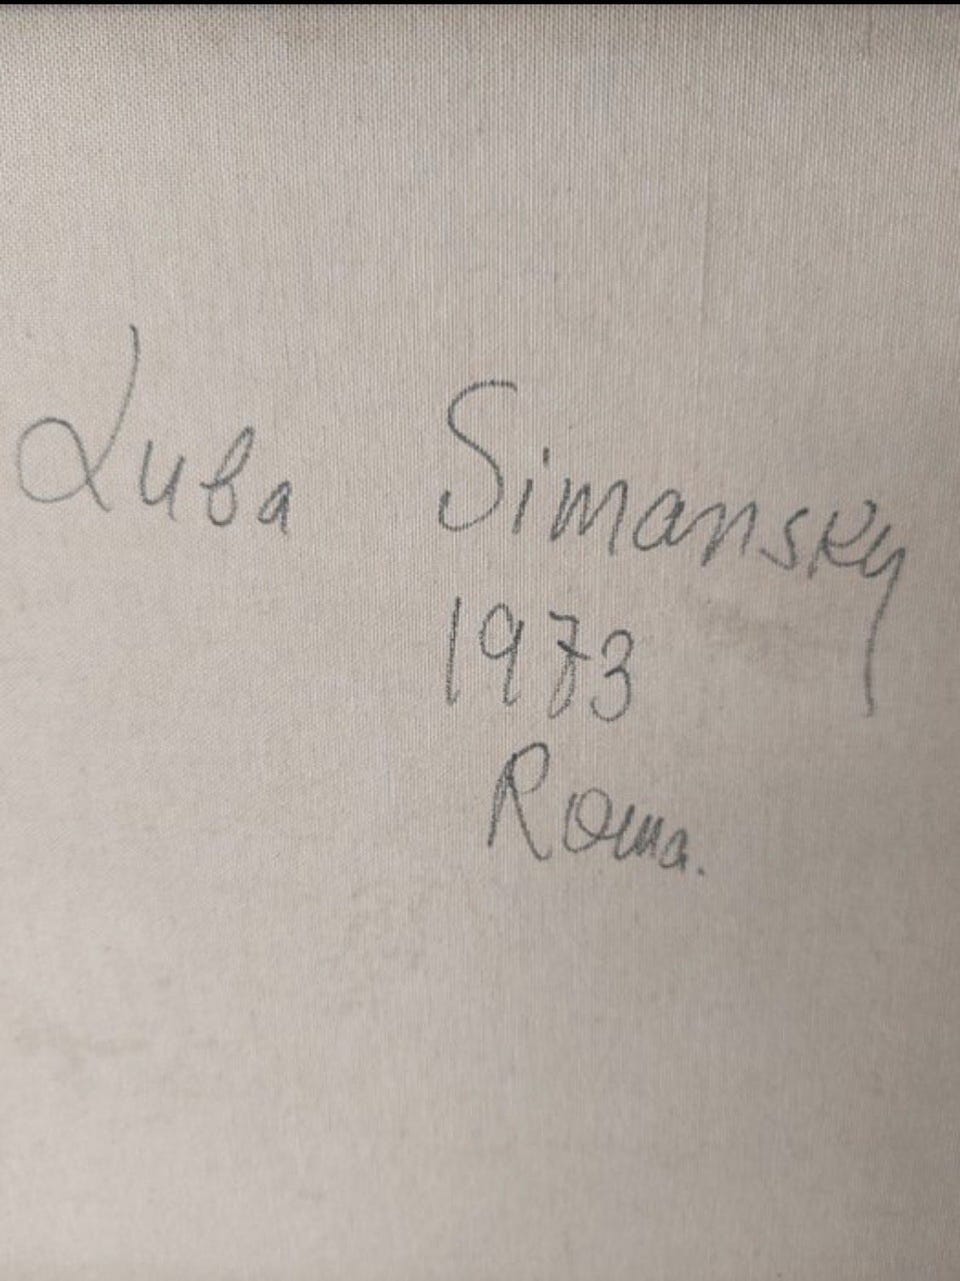 Luba Simansky
1973
Roma.